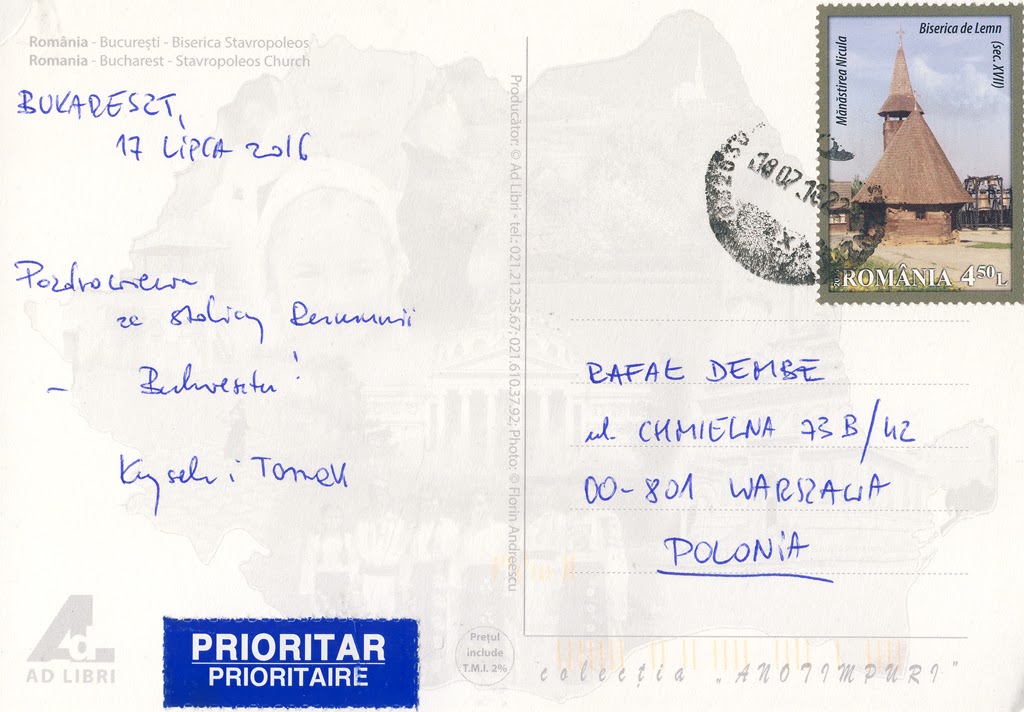 România - București - Biserica Stavropoleos
Romania - Bucharest - Stavropoleos Church
BUKARESZT,
17 LIPCA 2016
Pozdrowienia
ze stolicy Rumunii
- Bukaresztu!
i Tomek
PRIORITAR
PRIORITAIRE
AD LIBRI
Prețul
include
T.M.I. 2%
Producător: © Ad Libri - tel.: 021.212.35.67; 021.610.37.92; Photo: © Florin Andreescu
Biserica de Lemn
(sec. XVII)
Mănăstirea Nicula
ROMÂNIA 4 50 L
18.07.16
RAFAŁ DEMBE
ul. CHMIELNA 73B/42
00-801 WARSZAWA
POLONIA
colecția „ANOTIMPURI"